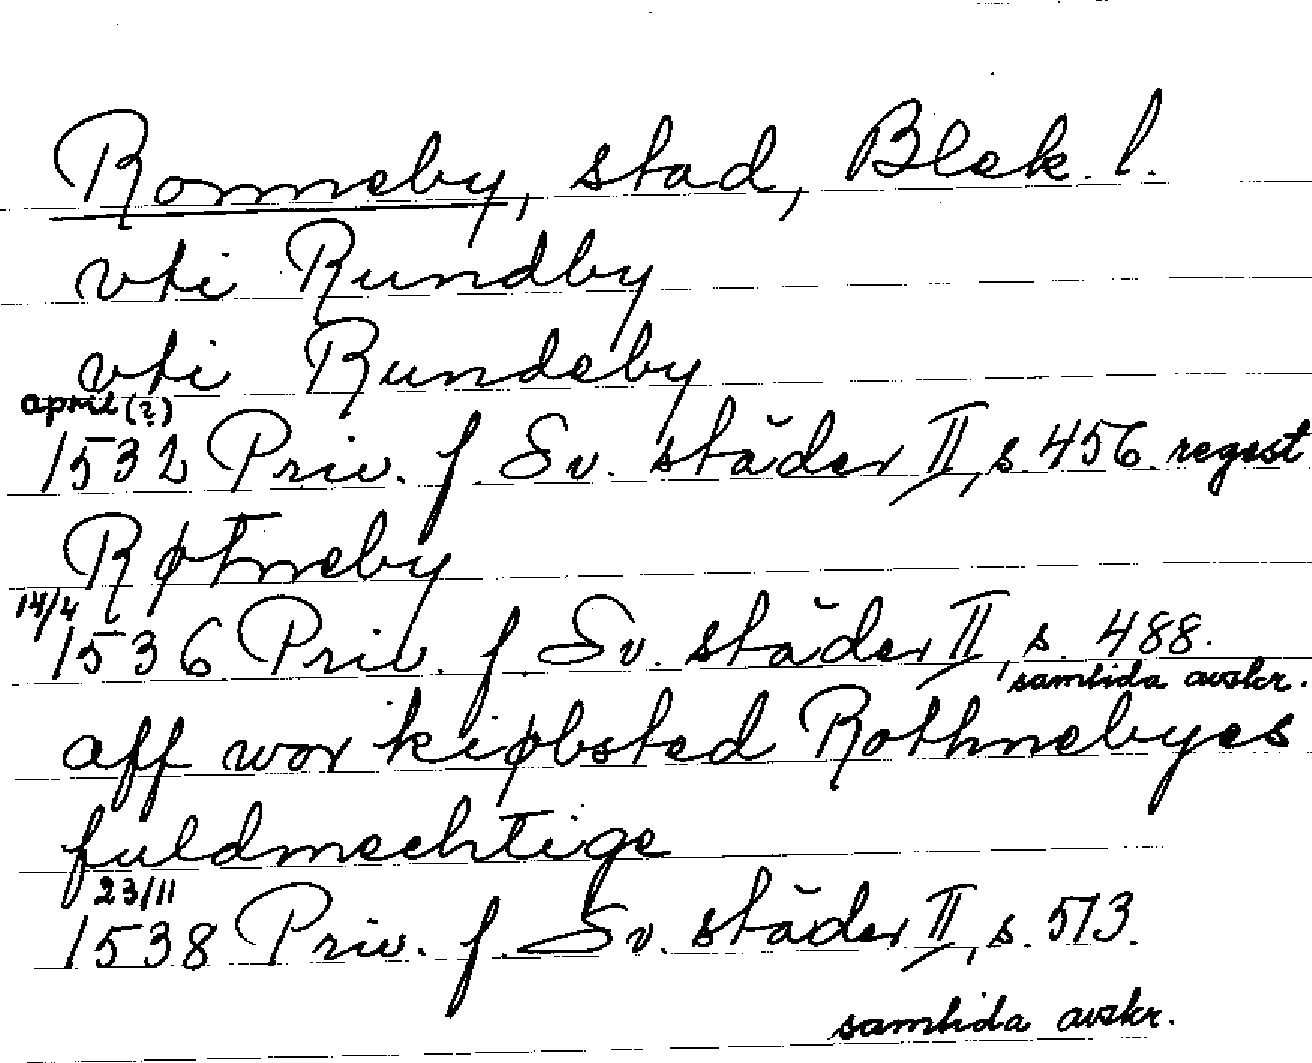 Ronneby, stad, Blek. l.
vti Rundby
vti Rundeby
april (?)
1532 Priv. f. Sv. städer II, s. 456. regest
Røtneby
14/4
1536 Priv. f. Sv. städer II, s. 488.
samtida avskr.
aff wor kiøbsted Rothnebyes
fuldmechtige
23/11
1538 Priv. f. Sv. städer II, s. 513.
samtida avskr.